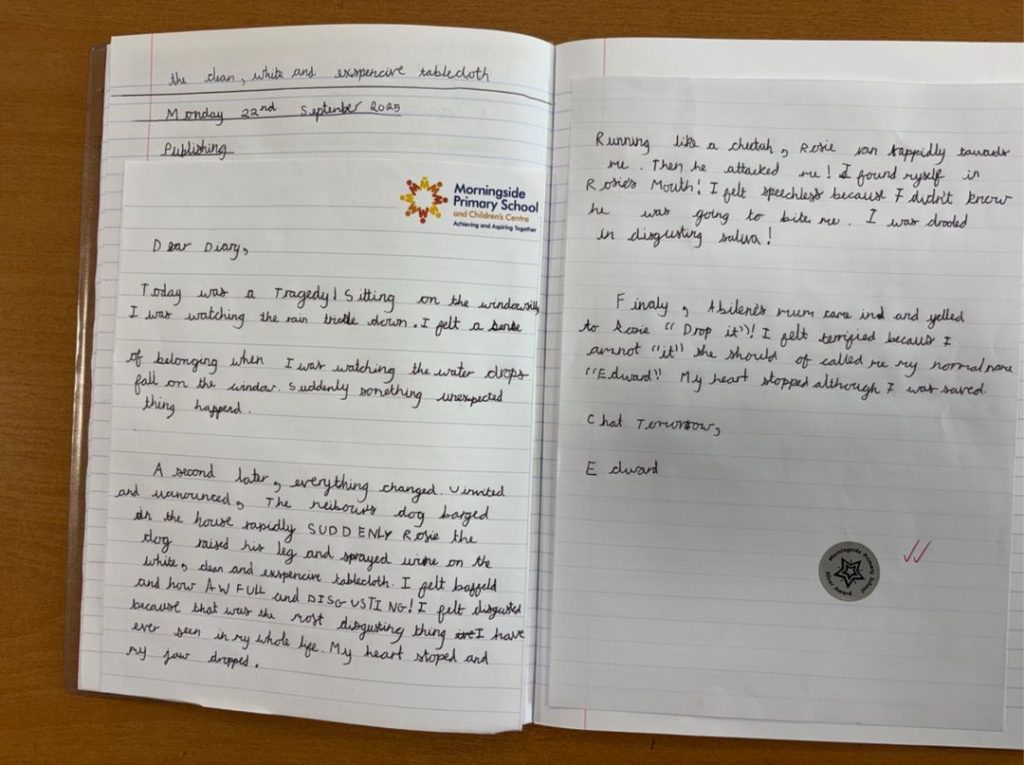 the clean, white and exspencive tablecloth
Monday 22nd September 2025
Publishing
Morningside
Primary School
and Children's Centre
Achieving and Aspiring Together
Dear Diary,
Today was a Tragedy! Sitting on the windowsill,
I was watching the rain trickle down. I felt a sense
of belonging when I was watching the water drops
fall on the window. Suddenly something unexpected
thing happend.
A second later, everything changed. Uinvited
and unanounced, The neibours dog barged
in the house rapidly SUDDENLY Rosie the
dog raised his leg and sprayed urine on the
white, clean and exspencive tablecloth. I felt baffeld
and how AWFULL and DISGUSTING! I felt disgusted
because that was the most disgusting thing I have
ever seen in my whole life. My heart stoped and
my jaw dropped.
Running like a cheetah, Rosie ran rappidly towards
me. Then he attacked me! I found myself in
Rosie's Mouth! I felt speechless because I didn't know
he was going to bite me. I was drooled
in disgusting saliva!
Finaly, Abilene's mum came in and yelled
to Rosie "Drop it"! I felt terrified because I
am not "it" she should of called me my normal name
"Edward" My heart stopped although I was saved.
Chat Tomorrow,
Edward
Morningside Primary School